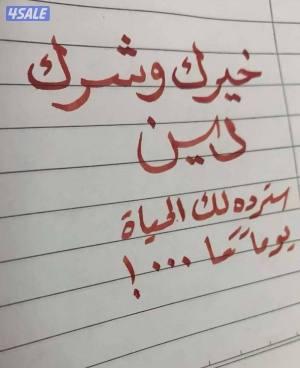 4SALE
خيرك وشرك
دين
استرده لك الحياة
يوماً ما ...!